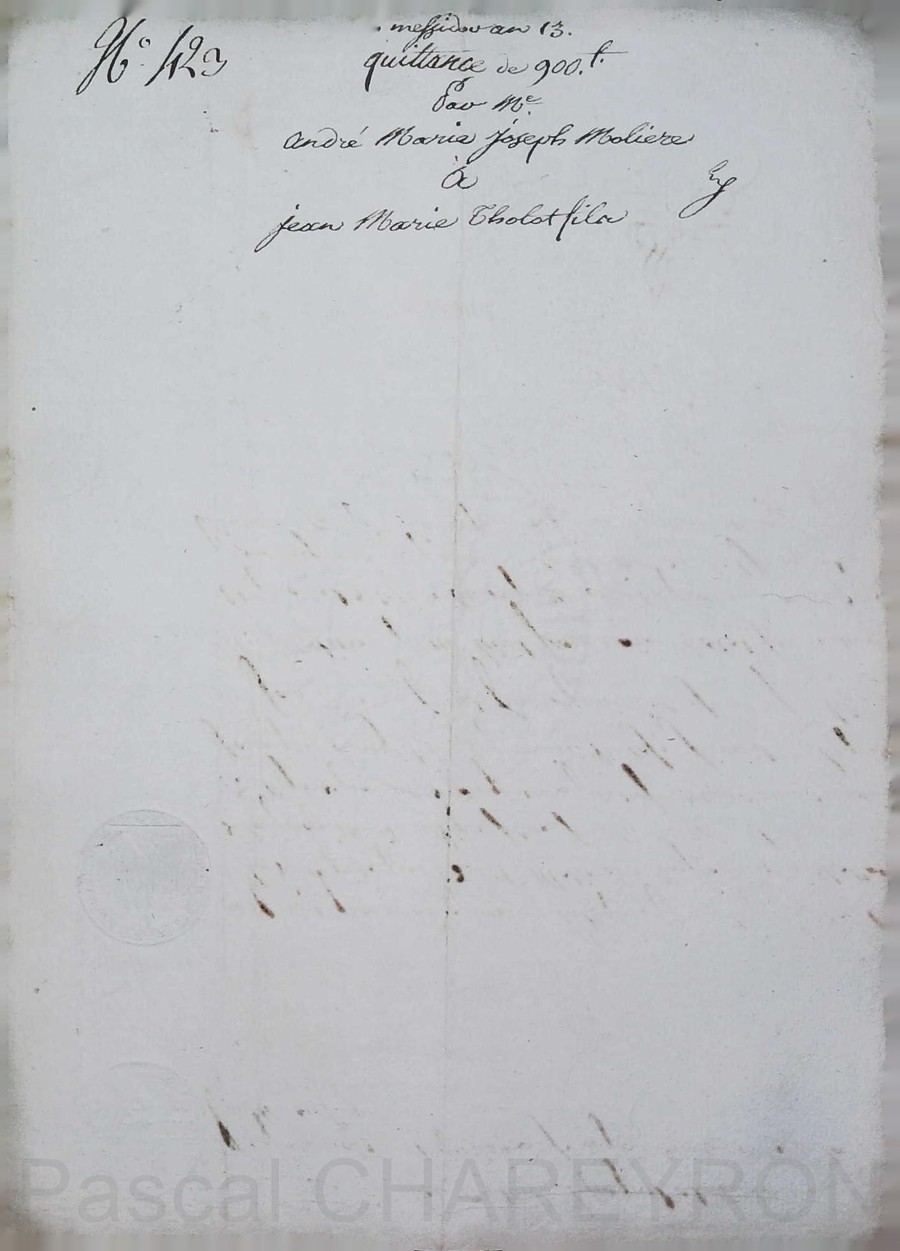 messidor an 13.
N.° 423
quittance de 900.ᵗ
Par M.ᵉ
andré Marie joseph Moliere
à
jean Marie Tholot fils
Pascal CHAREYRON